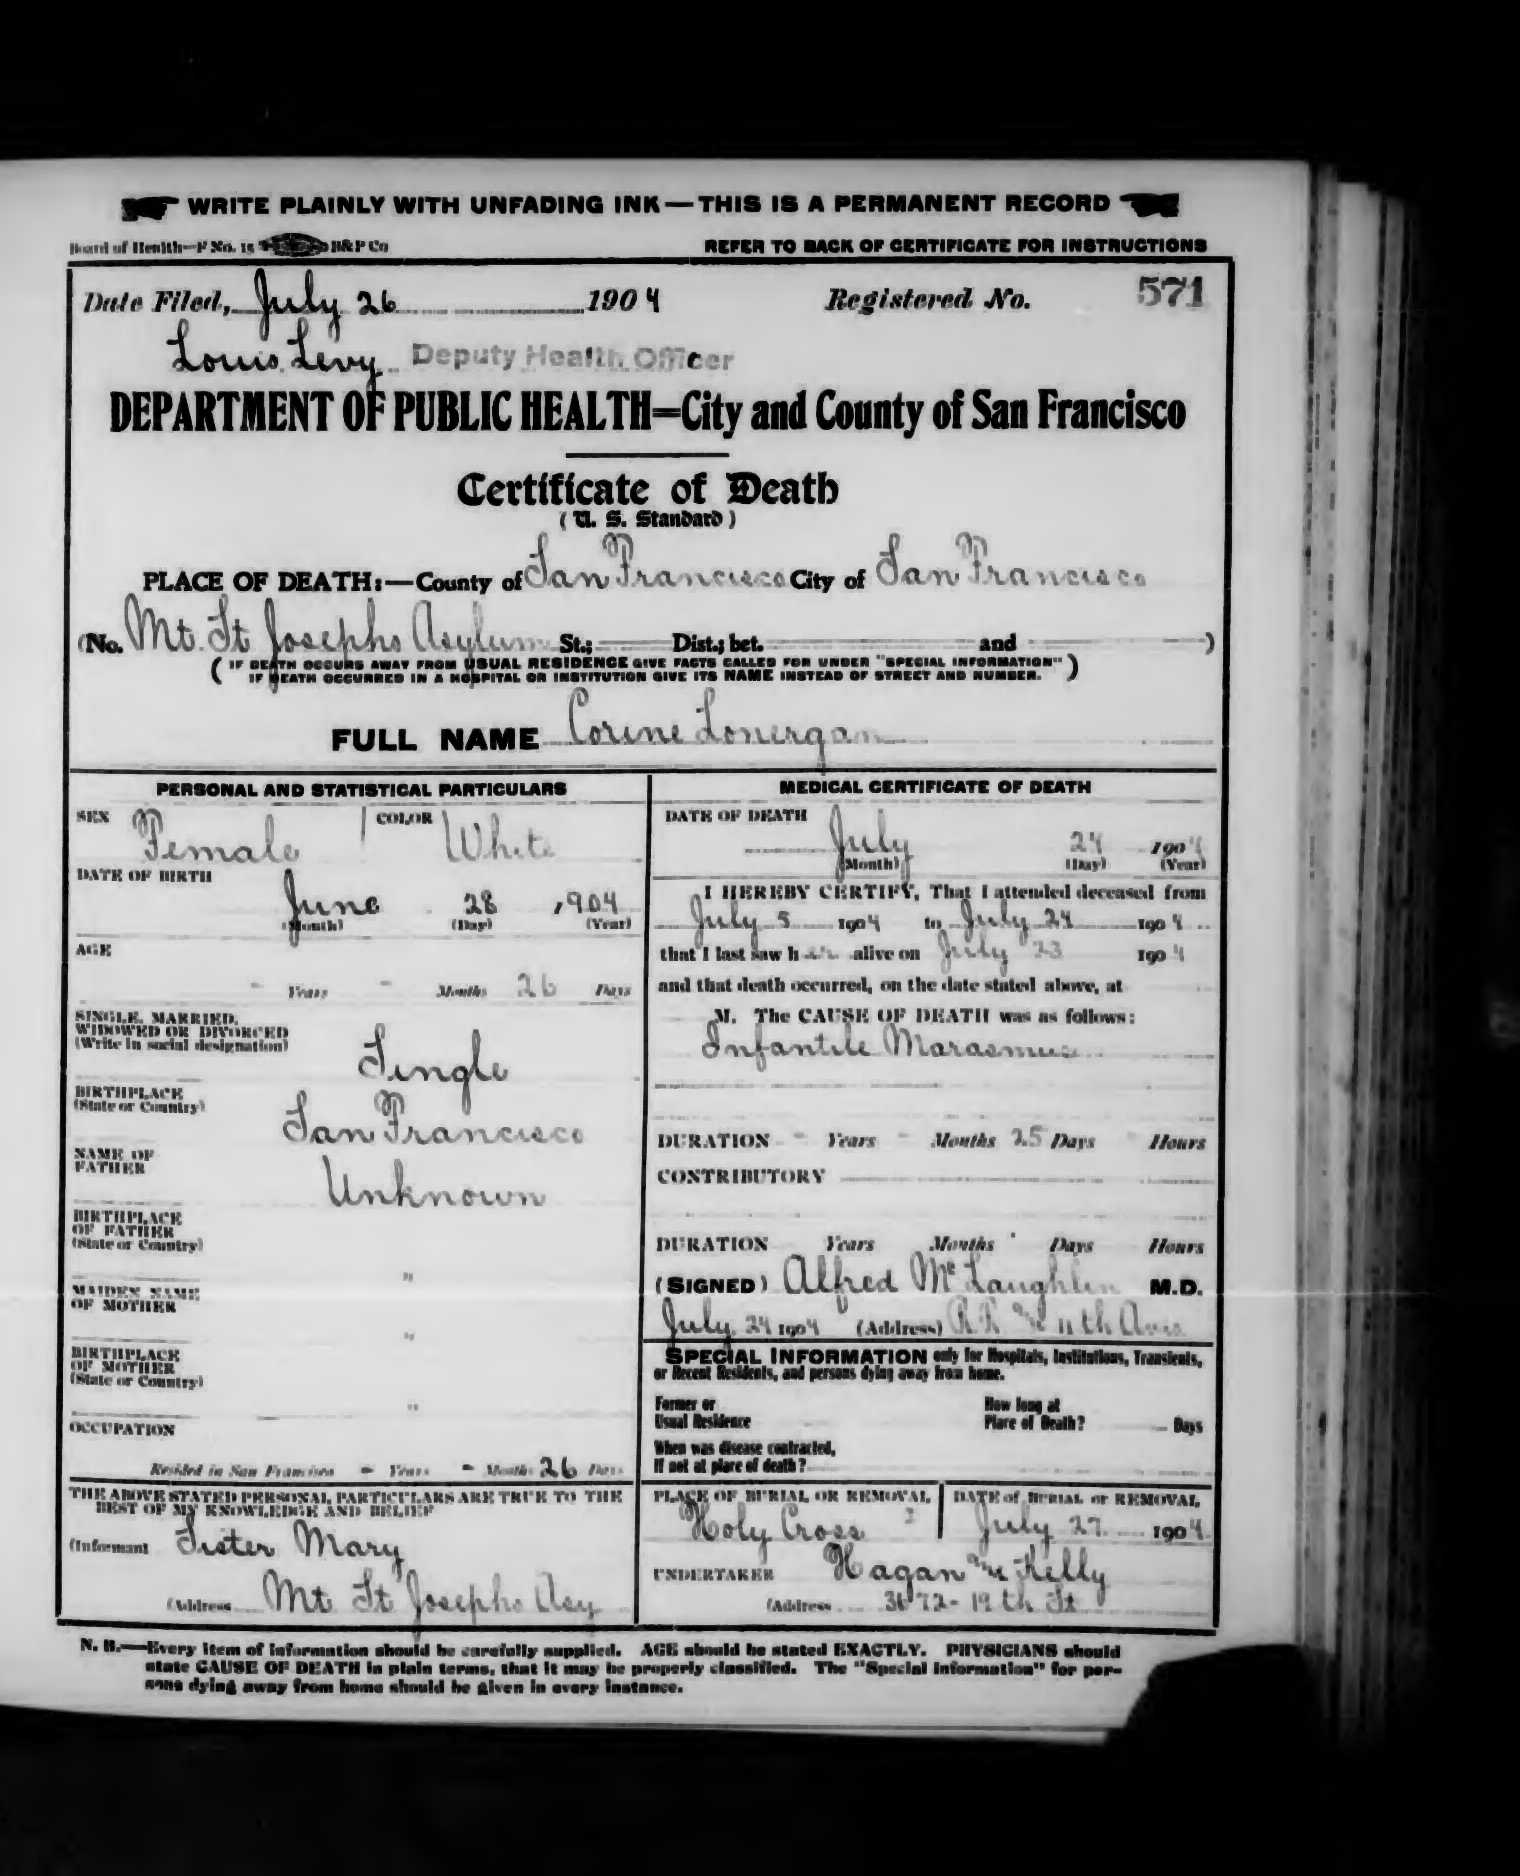 WRITE PLAINLY WITH UNFADING INK—THIS IS A PERMANENT RECORD
Board of Health—F No. 15 B&P Co REFER TO BACK OF CERTIFICATE FOR INSTRUCTIONS
Date Filed, July 26 1904 Registered No. 571
Louis Levy Deputy Health Officer
DEPARTMENT OF PUBLIC HEALTH=City and County of San Francisco
Certificate of Death
(U. S. Standard)
PLACE OF DEATH:—County of San Francisco City of San Francisco
(No. Mt. St Josephs Asylum St.; Dist.; bet. and )
(IF DEATH OCCURS AWAY FROM USUAL RESIDENCE GIVE FACTS CALLED FOR UNDER "SPECIAL INFORMATION"
IF DEATH OCCURRED IN A HOSPITAL OR INSTITUTION GIVE ITS NAME INSTEAD OF STREET AND NUMBER.)
FULL NAME Corine Lonergan
PERSONAL AND STATISTICAL PARTICULARS
SEX Female COLOR White
DATE OF BIRTH
June 28 1904
(Month) (Day) (Year)
AGE
- Years - Months 26 Days
SINGLE, MARRIED,
WIDOWED OR DIVORCED
(Write in social designation)
Single
BIRTHPLACE
(State or Country)
San Francisco
NAME OF
FATHER
Unknown
BIRTHPLACE
OF FATHER
(State or Country)
"
MAIDEN NAME
OF MOTHER
"
BIRTHPLACE
OF MOTHER
(State or Country)
"
OCCUPATION
Resided in San Francisco - Years - Months 26 Days
THE ABOVE STATED PERSONAL PARTICULARS ARE TRUE TO THE
BEST OF MY KNOWLEDGE AND BELIEF
(Informant Sister Mary
(Address Mt St Josephs Asy
MEDICAL CERTIFICATE OF DEATH
DATE OF DEATH
July 24 1904
(Month) (Day) (Year)
I HEREBY CERTIFY, That I attended deceased from
July 5 1904 to July 24 1904
that I last saw her alive on July 23 1904
and that death occurred, on the date stated above, at
M. The CAUSE OF DEATH was as follows:
Infantile Marasmus
DURATION - Years - Months 25 Days Hours
CONTRIBUTORY
DURATION Years Months Days Hours
(SIGNED) Alfred McLaughlin M.D.
July 24 1904 (Address) 11th Ave
SPECIAL INFORMATION only for Hospitals, Institutions, Transients,
or Recent Residents, and persons dying away from home.
Former or
Usual Residence
How long at
Place of Death? Days
When was disease contracted,
If not at place of death?
PLACE OF BURIAL OR REMOVAL DATE of BURIAL or REMOVAL
Holy Cross July 27 1904
UNDERTAKER Hagan Kelly
(Address 3672-19th St
N. B.—Every item of information should be carefully supplied. AGE should be stated EXACTLY. PHYSICIANS should
state CAUSE OF DEATH in plain terms, that it may be properly classified. The "Special Information" for per-
sons dying away from home should be given in every instance.